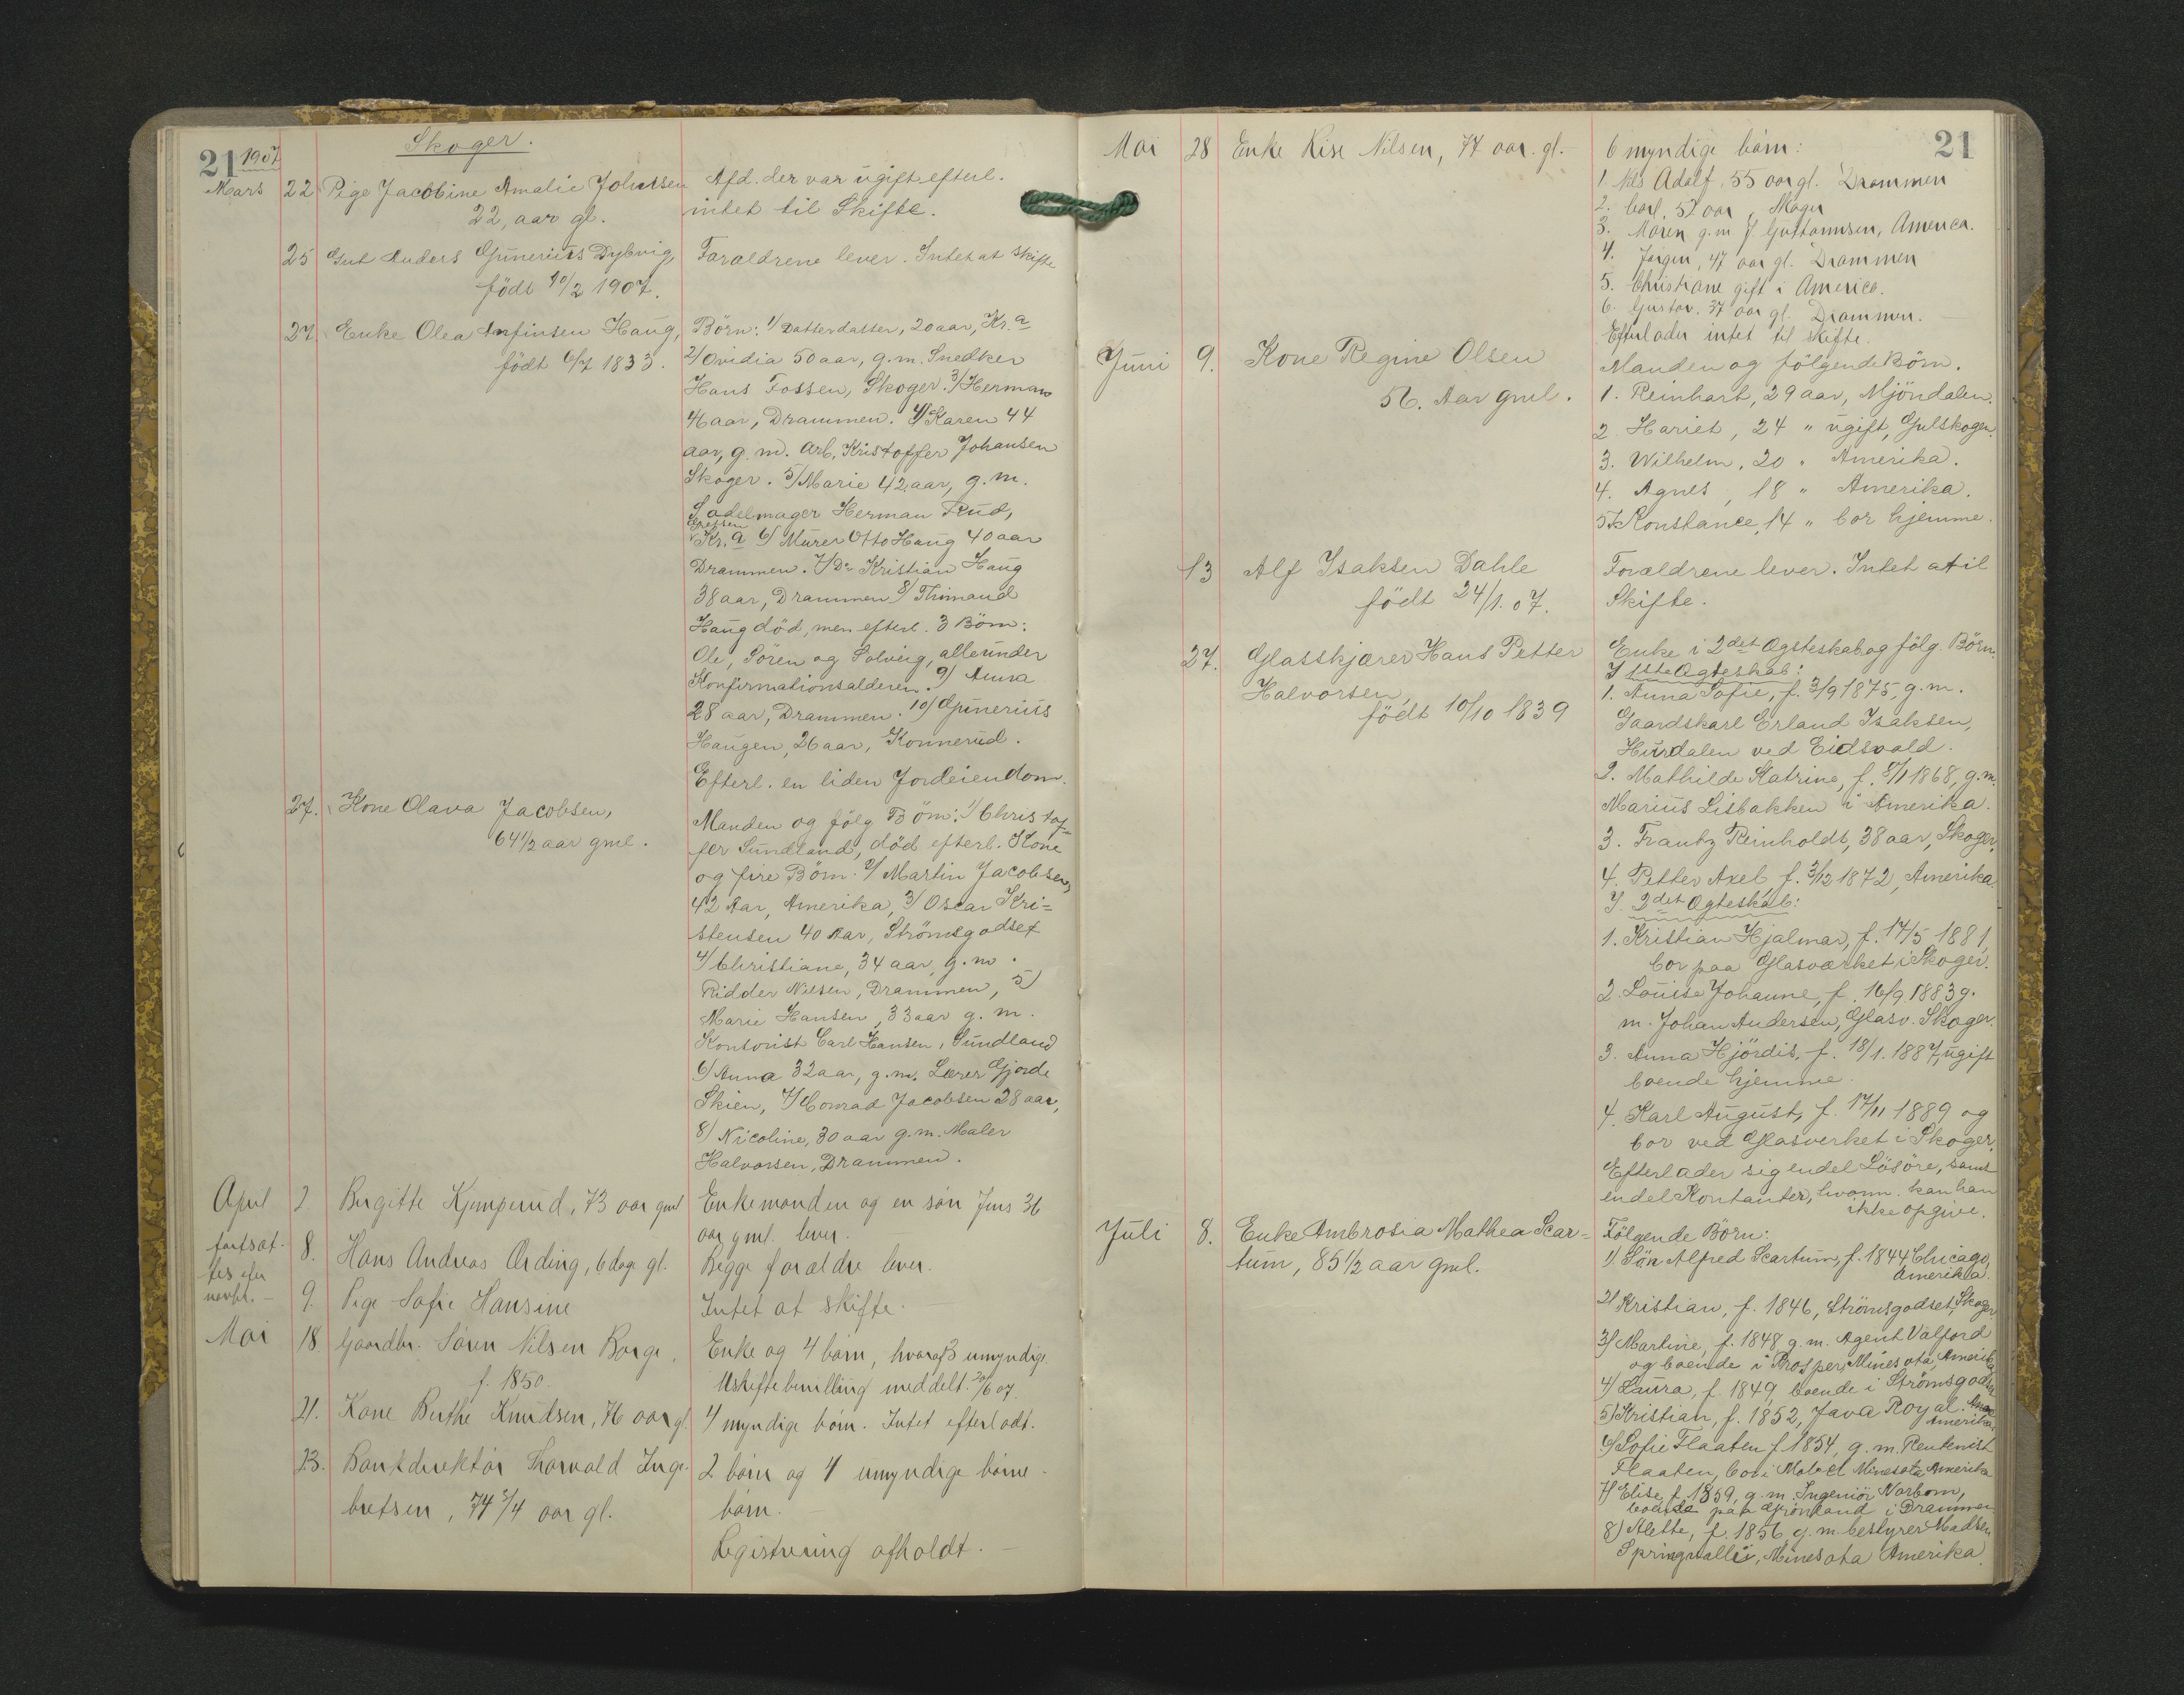 Skoger.
21 1907
Mars 22 Pige Jacobine Amalie Johnsen
22, aar gl.
Afd. der var ugift efterl.
intet til Skifte.
25 Gut Anders Gunerius Dybvig,
födt 10/2 1907.
Forældrene lever. Intet at skifte
27 Enke Olea Arfinsen Haug,
födt 6/7 1833.
Börn: 1/ Datterdatter, 20 aar, Kr.a
2/ Ovidia 50 aar, g.m. Snedker
Hans Fossen, Skoger. 3/ Herman
46 aar, Drammen. 4/ Karen 44
aar, g. m. Arb. Kristoffer Johansen
Skoger. 5/ Marie 42 aar, g. m.
Sadelmager Herman Rud,
Kr.a 6/ Murer Otto Haug 40 aar
Drammen. 7/ Do Kristian Haug
38 aar, Drammen 8/ Thimand
Haug död, men efterl. 3 Börn:
Ole, Sören og Solveig, alle under
Konfirmationsalderen. 9/ Anna
28 aar, Drammen. 10/ Gunerius
Haugen, 26 aar, Konnerud.
Efterl. en liden Jordeiendom.
27. Kone Olava Jacobsen,
64 1/2 aar gml.
Manden og fölg Börn: 1/ Christof-
fer Sundland, död efterl. Kone
og fire Börn. 2/ Martin Jacobsen,
42 Aar, Amerika, 3/ Oscar Kri=
stensen 40 Aar, Strömsgodset
4/ Christiane, 34 aar, g. m.
Ridder Nilsen, Drammen, 5/
Marie Hansen, 33 aar g. m.
Kontorist Carl Hansen, Sundland
6/ Anna 32 aar, g. m. Lærer Gjorde
Skien, 7/ Conrad Jacobsen 28 aar,
8/ Nicoline, 30 aar g. m. Maler
Halvorsen, Drammen.
April 2. Birgitte Kjemperud, 73 aar gml
Enkemanden og en sön Jens 36
aar gml. lever.
fortsat-
tes efter
8. Hans Andreas Örding, 6 dage gl.
Begge forældre lever.
9. Pige Sofie Hansine
Intet at skifte.
Mai 18 Gaardbr. Sören Nilsen Borge,
f. 1850.
Enke og 4 börn, hvoraf 3 umyndige.
Uskiftebevilling meddelt 20/6 07.
21. Kone Berthe Knudsen, 76 aar gl.
4 myndige börn. Intet efterladt.
23. Bankdirektör Thorvald Inge-
bretsen, 74 3/4 aar gl.
2 börn og 4 umyndige börne-
börn.
Registrering afholdt. -
21
Mai 28 Enke Lise Nilsen, 77 aar. gl. -
6 myndige börn:
1 Nils Adolf, 55 aar gl. Drammen
2. Carl, 52 aar, Skoger
3. Maren g. m. J. Guttormsen, America.
4. Jörgen, 47 aar gl. Drammen
5. Christiane gift i America.
6. Gustav. 37 aar gl. Drammen. -
Efterlader intet til skifte.
Juni 9. Kone Regine Olsen
56. Aar gml.
Manden og fölgende Börn.
1. Reinhart, 29 aar, Mjöndalen.
2. Hariet, 24 " ugift, Gulskogen.
3. Wilhelm, 20 " Amerika.
4. Agnes, 18 " Amerika.
5. Konstance, 14 " bor hjemme.
13 Alf Isaksen Dahle
födt 24/1. 07.
Forældrene lever. Intet at il
Skifte.
27. Glasskjærer Hans Petter
Halvorsen,
födt 10/10 1839
Enke i 2det Ægteskab og fölg. Börn.
I 1ste Ægteskab:
1. Anna Sofie, f. 3/9 1875, g. m.
Gaardskarl Erland Isaksen,
Hurdalen ved Eidsvold.
2. Mathilde Katrine, f. 8/1 1868, g. m.
Marius Lisbakken i Amerika.
3. Frantz Reinholdt, 38 aar, Skoger.
4. Petter Axel, f. 3/12 1872, Amerika.
I 2det Ægteskab:
1. Kristian Hjalmar, f. 14/5 1881,
bor paa Glasværket i Skoger.
2. Louise Johanne, f. 16/9. 1883 g.
m. Johan Andersen, Glasv. Skoger.
3. Anna Hjördis, f. 18/1. 1887, ugift
boende hjemme.
4. Karl August, f. 17/11 1889 og
bor ved Glasverket i Skoger.
Efterlader sig endel Lösöre, samt
endel Kontanter, hvorm. kan han
ikke opgive.
Juli 8. Enke Ambrosia Mathea Scar=
tum, 85 1/2 aar gml.
Fölgende Börn:
1) Sön Alfred Scartum, f. 1844 Chicago,
Amerika.
2) Kristian, f. 1846, Strömsgodset, Skoger
3) Martine, f. 1848 g. m. Agent Valford
og boende i Prosper, Minesota, Amerika
4) Laura, f. 1849, boende i Strömsgodset
5) Kristian, f. 1852, Java Royal.
Amerika.
6) Sofie Flaaten f. 1854, g. m. Rentenist
Flaaten, bor i Mabel Minesota Amerika
7) Elise, f. 1859, g. m. Ingeniör Norbom,
boende paa Grönland i Drammen
8) Alette, f. 1856 g. m. bestyrer Madsen
Springvallei, Minesota Amerika.